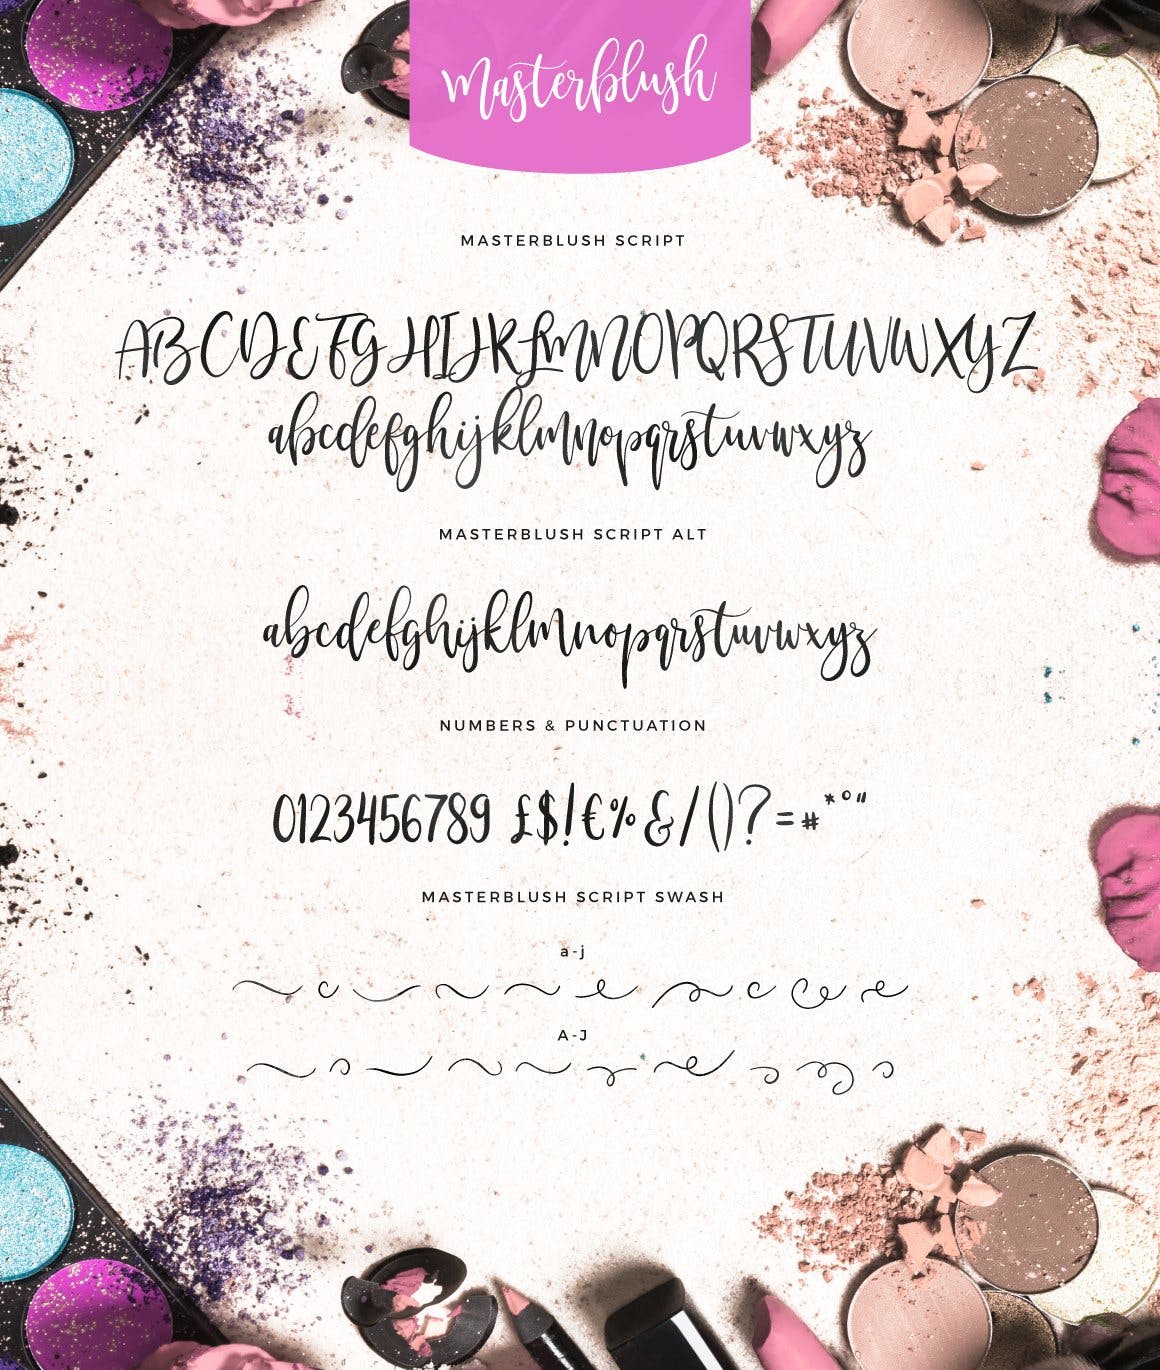 Masterblush
MASTERBLUSH SCRIPT
ABCDEFGHIJKLMNOPQRSTUVWXYZ
abcdefghijklmnopqrstuvwxyz
MASTERBLUSH SCRIPT ALT
abcdefghijklmnopqrstuvwxyz
NUMBERS & PUNCTUATION
0123456789 £$!€%&/()?=#*°"
MASTERBLUSH SCRIPT SWASH
a-j
A-J